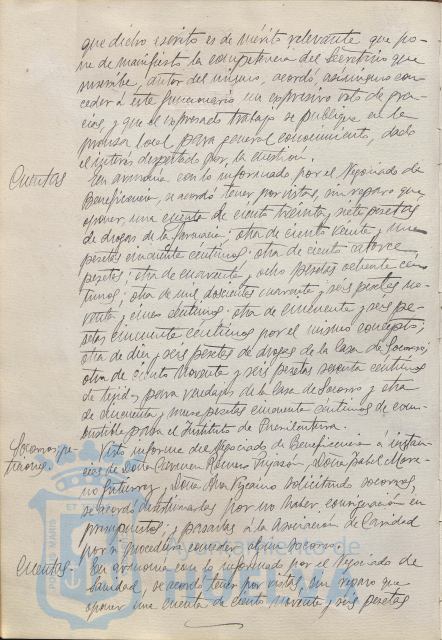 que dicho escrito es de mérito relevante que po-
ne de manifiesto la competencia del Secretario que
suscribe, autor del mismo, acordó asimismo con-
ceder á este funcionario un expresivo voto de gra-
cias, y que el expresado trabajo se publique en la
prensa local para general conocimiento, dado
el interés despertado por la cuestion.
Cuentas
En armonia con lo informado por el Negociado de
Beneficencia, se acordó tener por vistas, sin reparo que
oponer, una cuenta de ciento treinta y siete pesetas
de drogas de la Farmacia; otra de ciento veinte y una
pesetas cincuenta céntimos; otra de ciento catorce
pesetas; otra de cuarenta y ocho pesetas ochenta cén-
timos; otra de mil doscientas cuarenta y seis pesetas no-
venta y cinco céntimos; otra de cincuenta y seis pe-
setas cincuenta céntimos por el mismo concepto;
otra de diez y seis pesetas de drogas de la Casa de Socorro;
otra de ciento noventa y seis pesetas sesenta céntimos
de tejidos para vendajes de la Casa de Socorro y otra
de cincuenta y nueve pesetas cincuenta céntimos de com-
bustible para el Instituto de
Socorros, pe-
ticiones.
Visto informe del Negociado de Beneficencia á instan-
cias de Doña Carmen Romero Doña Isabel More-
no Gutierrez y Doña Ana Vizcaino solicitando socorros,
se acordó desestimarlas por no haber consignación en
presupuestos, y pasarlas á la Asociación de Caridad
por si procediera conceder algun socorro.
Cuentas.
En armonia con lo informado por el Negociado de
Sanidad, se acordó tener por vistas, sin reparo que
oponer una cuenta de ciento noventa y seis pesetas
Ayuntamiento de